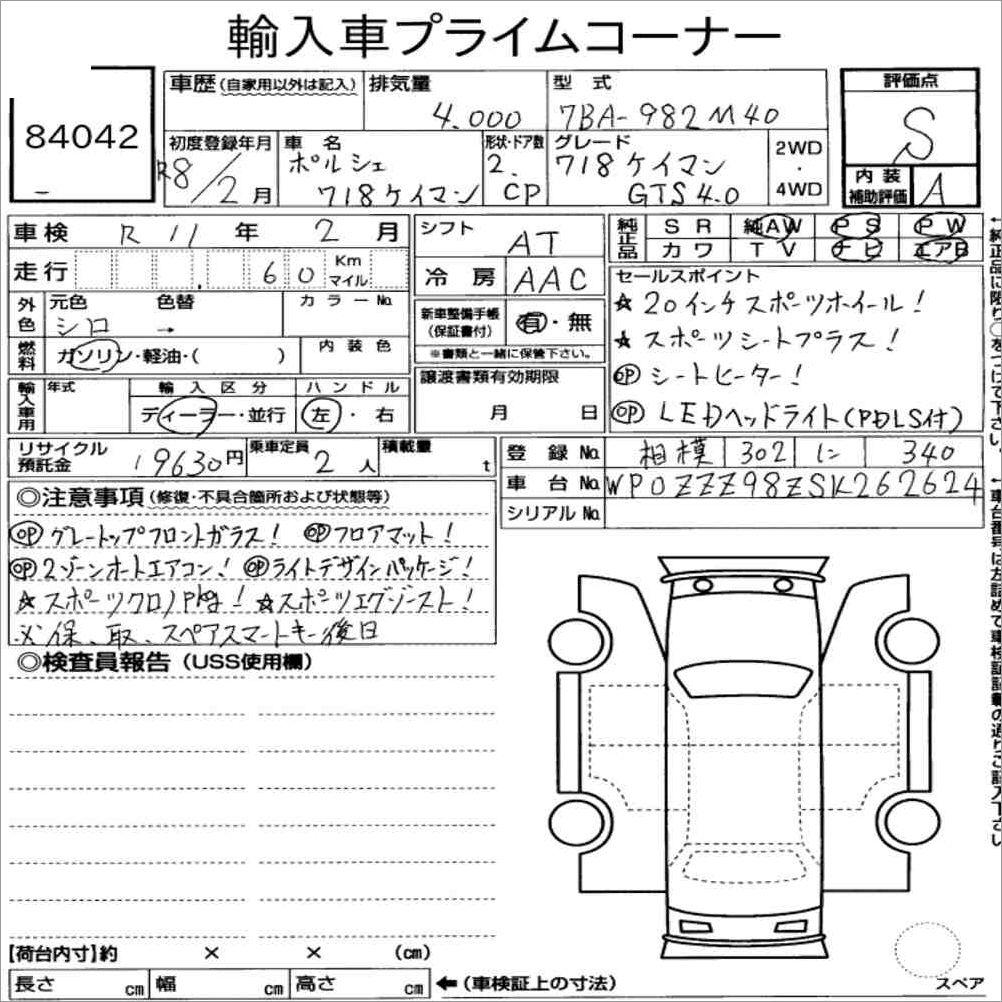 輸入車プライムコーナー
84042
車歴(自家用以外は記入)
排気量
4.000
型式
7BA-982M40
評価点
S
初度登録年月
R8/2月
車名
ポルシェ
718ケイマン
形状・ドア数
2.
CP
グレード
718ケイマン
GTS4.0
2WD
・
4WD
内装
補助評価
A
車検 R11年 2月
シフト
AT
純正品
SR 純AW PS PW
カワ TV ナビ エアB
走行 60 Km マイル
冷房 AAC
セールスポイント
☆20インチスポーツホイール!
☆スポーツシートプラス!
OPシートヒーター!
OPLEDヘッドライト(PDLS付)
外色
元色
シロ
色替
→
カラーNo.
新車整備手帳
(保証書付)
有・無
※書類と一緒に保管下さい。
燃料
ガソリン・軽油・( )
内装色
譲渡書類有効期限
月 日
輸入車用
年式
輸入区分
ディーラー・並行
ハンドル
左・右
リサイクル
預託金
19630円
乗車定員
2人
積載量
t
登録No. 相模 302 に 340
車台No. WP0ZZZ98ZSK262624
シリアルNo.
◎注意事項(修復・不具合箇所および状態等)
OPグレートップフロントガラス! OPフロアマット!
OP2ゾーンオートエアコン! OPライトデザインパッケージ!
☆スポーツクロノPkg! ☆スポーツエグゾースト!
※保、取、スペアスマートキー後日
◎検査員報告(USS使用欄)
←純正品に限り○をつけて下さい。
←車台番号は左詰めで車検証記載の通りご記入下さい
【荷台内寸】約 × × (cm)
長さ cm 幅 cm 高さ cm ←(車検証上の寸法)
スペア